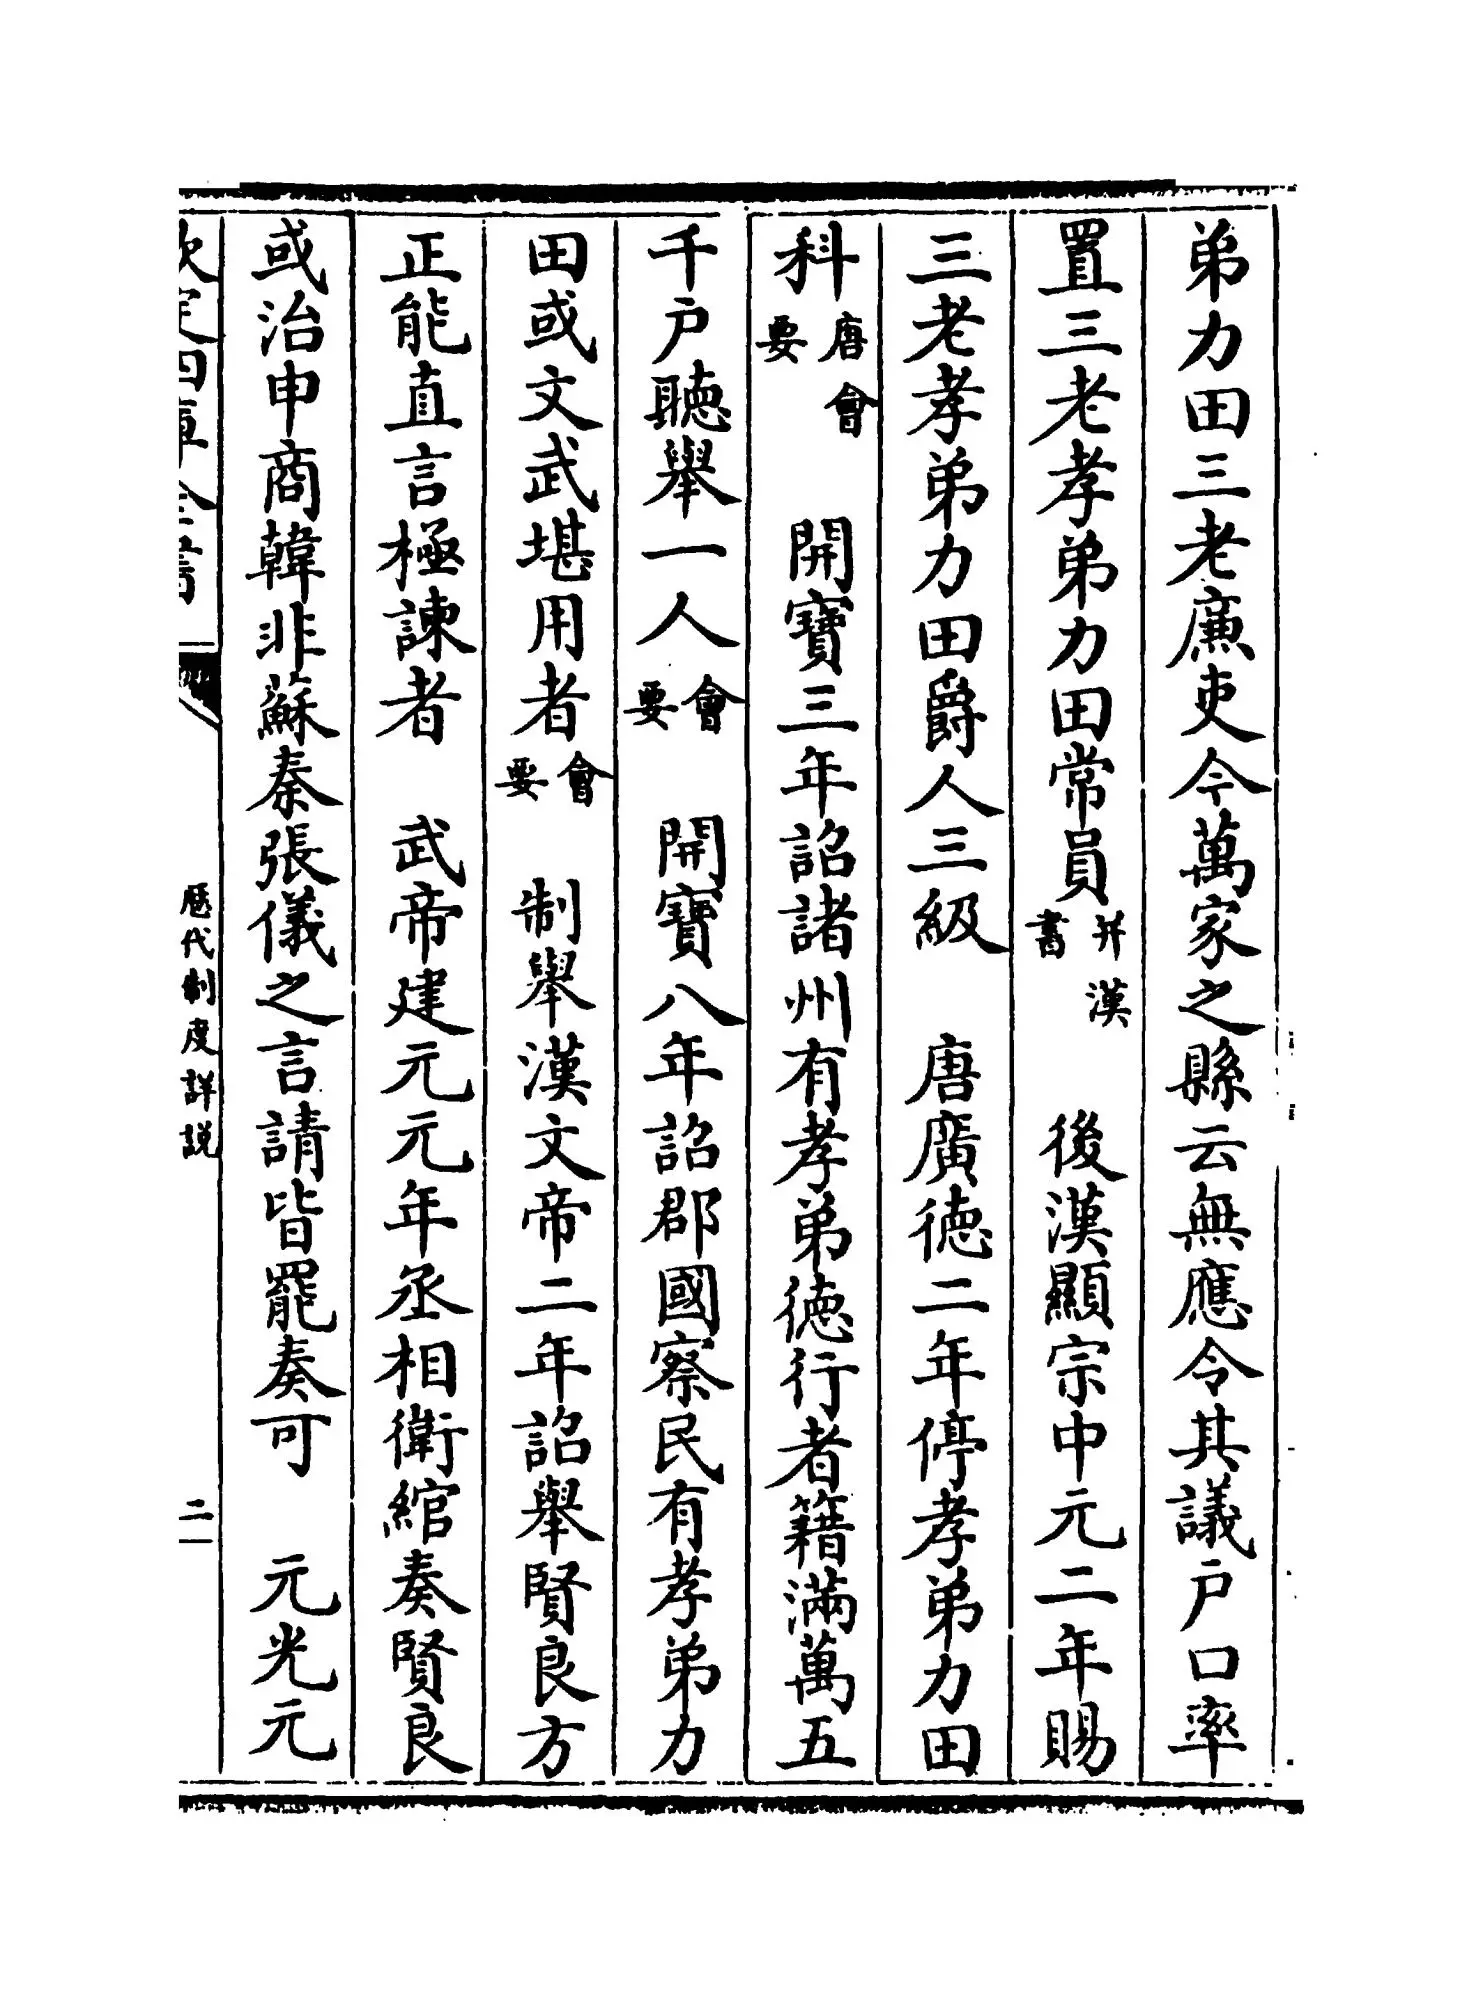 弟力田三老廉吏今萬家之縣云無應令其議戶口率
置三老孝弟力田常員并漢書　後漢顯宗中元二年賜
三老孝弟力田爵人三級　唐廣德二年停孝弟力田
科唐會要　開寶三年詔諸州有孝弟德行者籍滿萬五
千戶聽舉一人會要　開寶八年詔郡國察民有孝弟力
田或文武堪用者會要　制舉漢文帝二年詔舉賢良方
正能直言極諫者　武帝建元元年丞相衛綰奏賢良
或治申商韓非蘇秦張儀之言請皆罷奏可　元光元
欽定四庫全書
歷代制度詳說
二